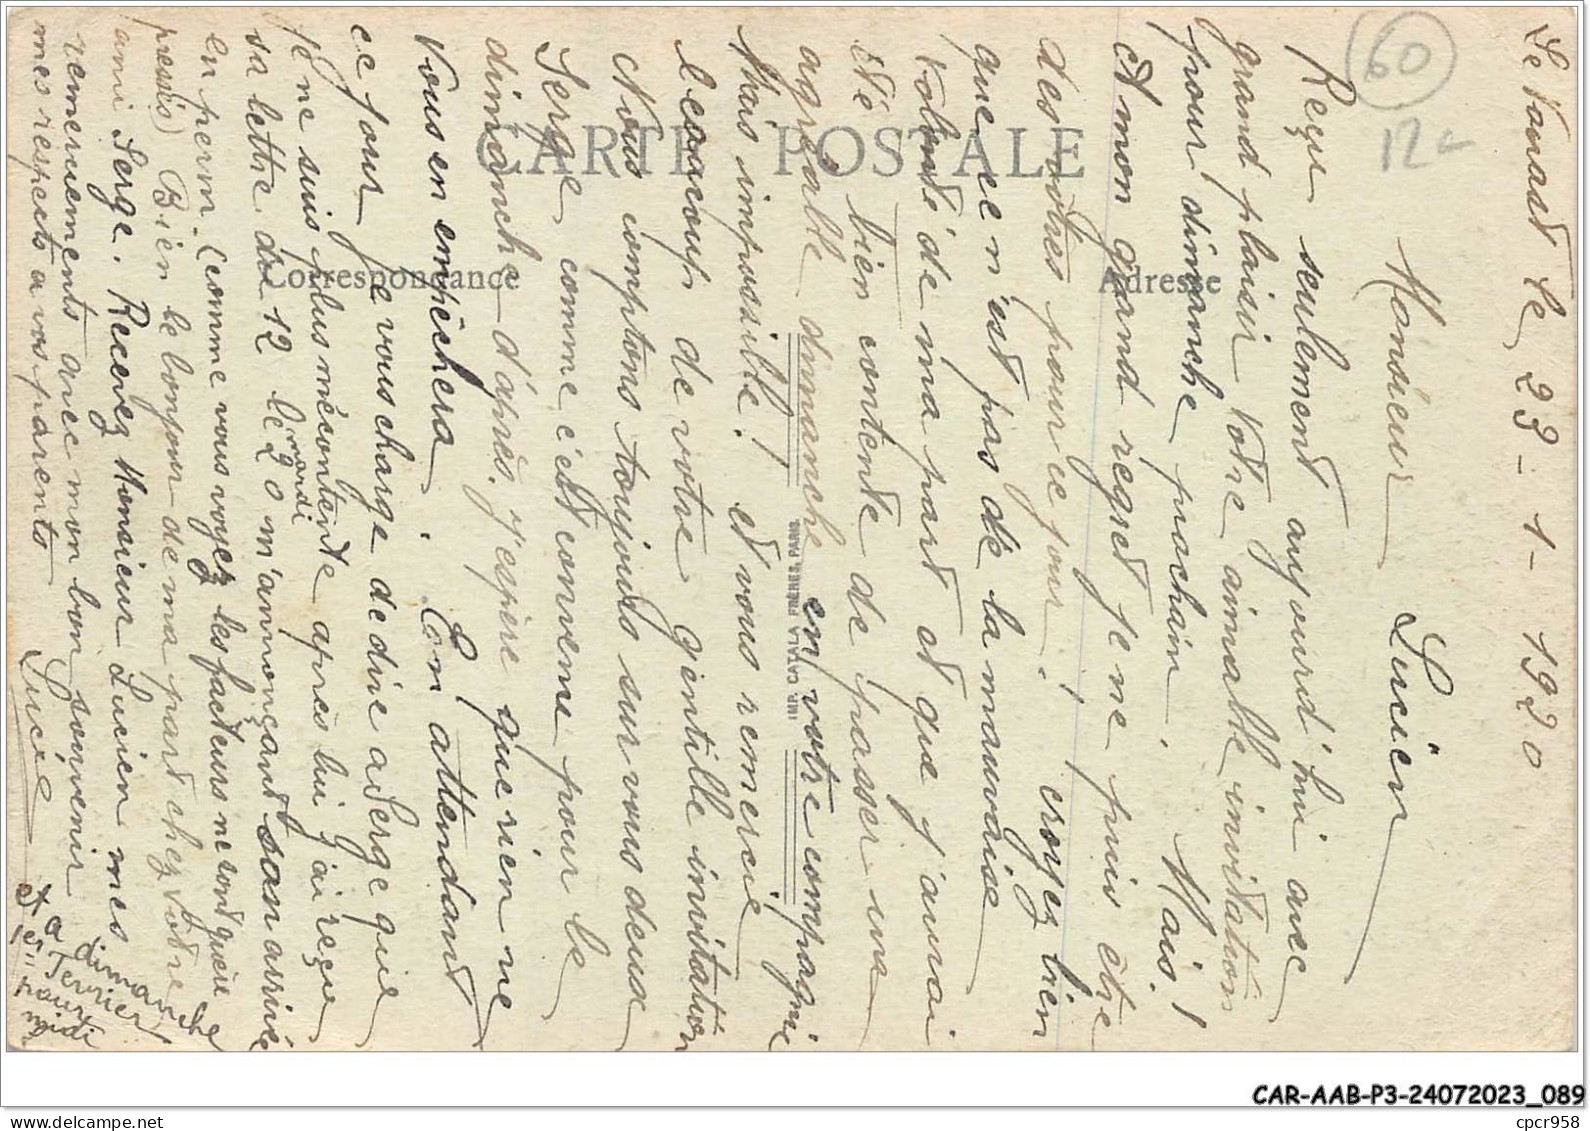 Le Vonast le 23-1-1920
Monsieur Lucien
Reçu seulement aujourd'hui avec
grand plaisir votre aimable invitation
pour dimanche prochain. Mais!
A mon grand regret je ne puis être
des vôtres pour ce jour! croyez bien
que ce n'est pas de la mauvaise
volonté de ma part et que j'aurai
été bien contente de passer une
agréable dimanche en votre compagnie
Mais impossible! et vous remercie
beaucoup de votre gentille invitation
Nous comptons toujours sur vous deux
Serge comme c'est convenu pour le
dimanche d'après. J'espère que rien ne
vous en empêchera. En attendant
ce jour je vous charge de dire a Serge que
je ne suis plus mécontente après lui j'ai reçu
sa lettre du 12 le 20 mardi m'annonçant son arrivée
en perm. (comme vous voyez les facteurs ne sont guère
pressés) Bien le bonjour de ma part chez votre
ami Serge. Recevez Monsieur Lucien mes
remerciements avec mon bon souvenir
mes respects a vos parents Lucie
et a dimanche
1er Fevrier
pour
midi
CARTE POSTALE
Correspondance
Adresse
IMP. CATALA FRÈRES, PARIS.
60
12
CAR-AAB-P3-24072023_089
cpcr958